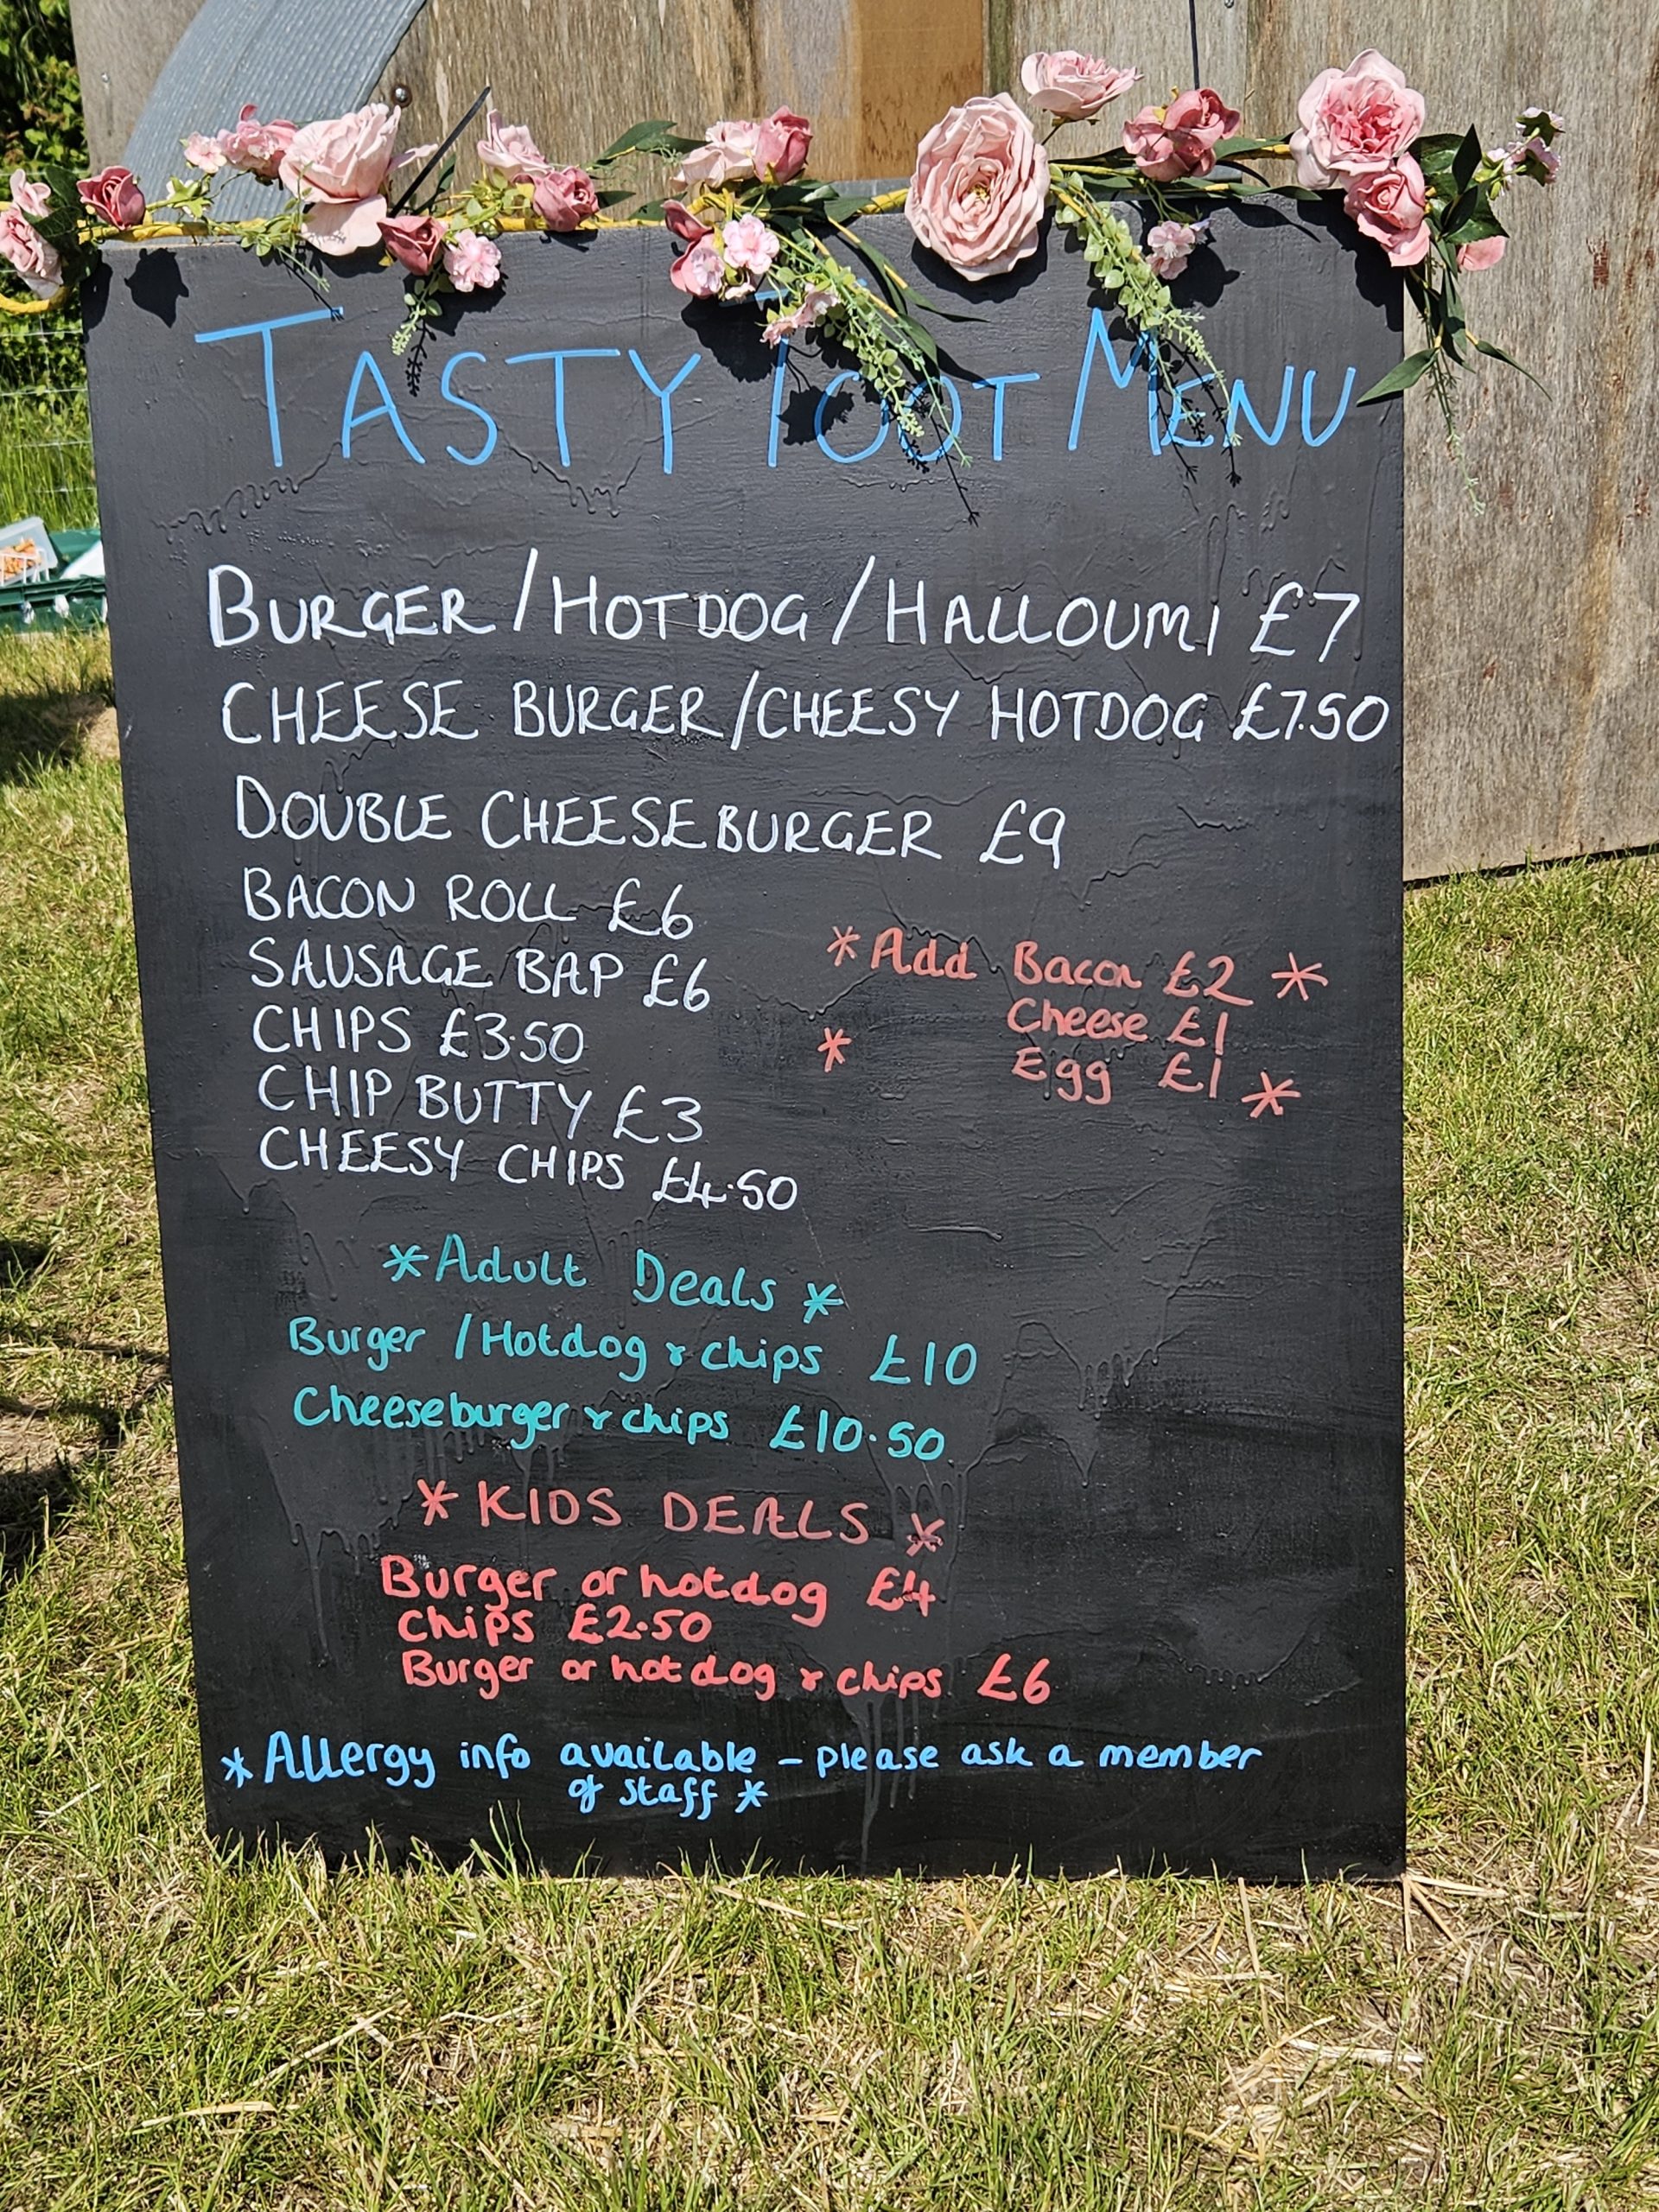 TASTY TOOT MENU
BURGER/HOTDOG/HALLOUMI £7
CHEESE BURGER/CHEESY HOTDOG £7.50
DOUBLE CHEESEBURGER £9
BACON ROLL £6
SAUSAGE BAP £6
CHIPS £3.50
CHIP BUTTY £3
CHEESY CHIPS £4.50
*Add Bacon £2 *
Cheese £1
* Egg £1 *
*Adult Deals *
Burger /Hotdog & chips £10
Cheeseburger & chips £10.50
* KIDS DEALS *
Burger or hotdog £4
Chips £2.50
Burger or hotdog & chips £6
* Allergy info available - please ask a member
of staff *